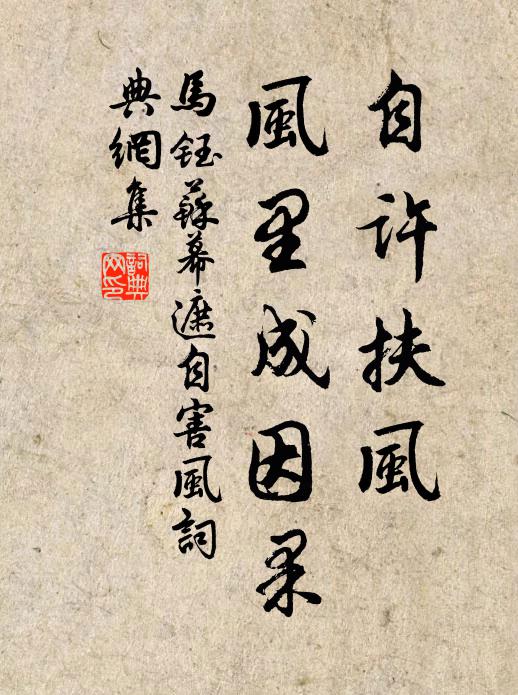 自許扶風
風里成因果
馬鈺蘇幕遮自害風詞
典網集
詞典網印